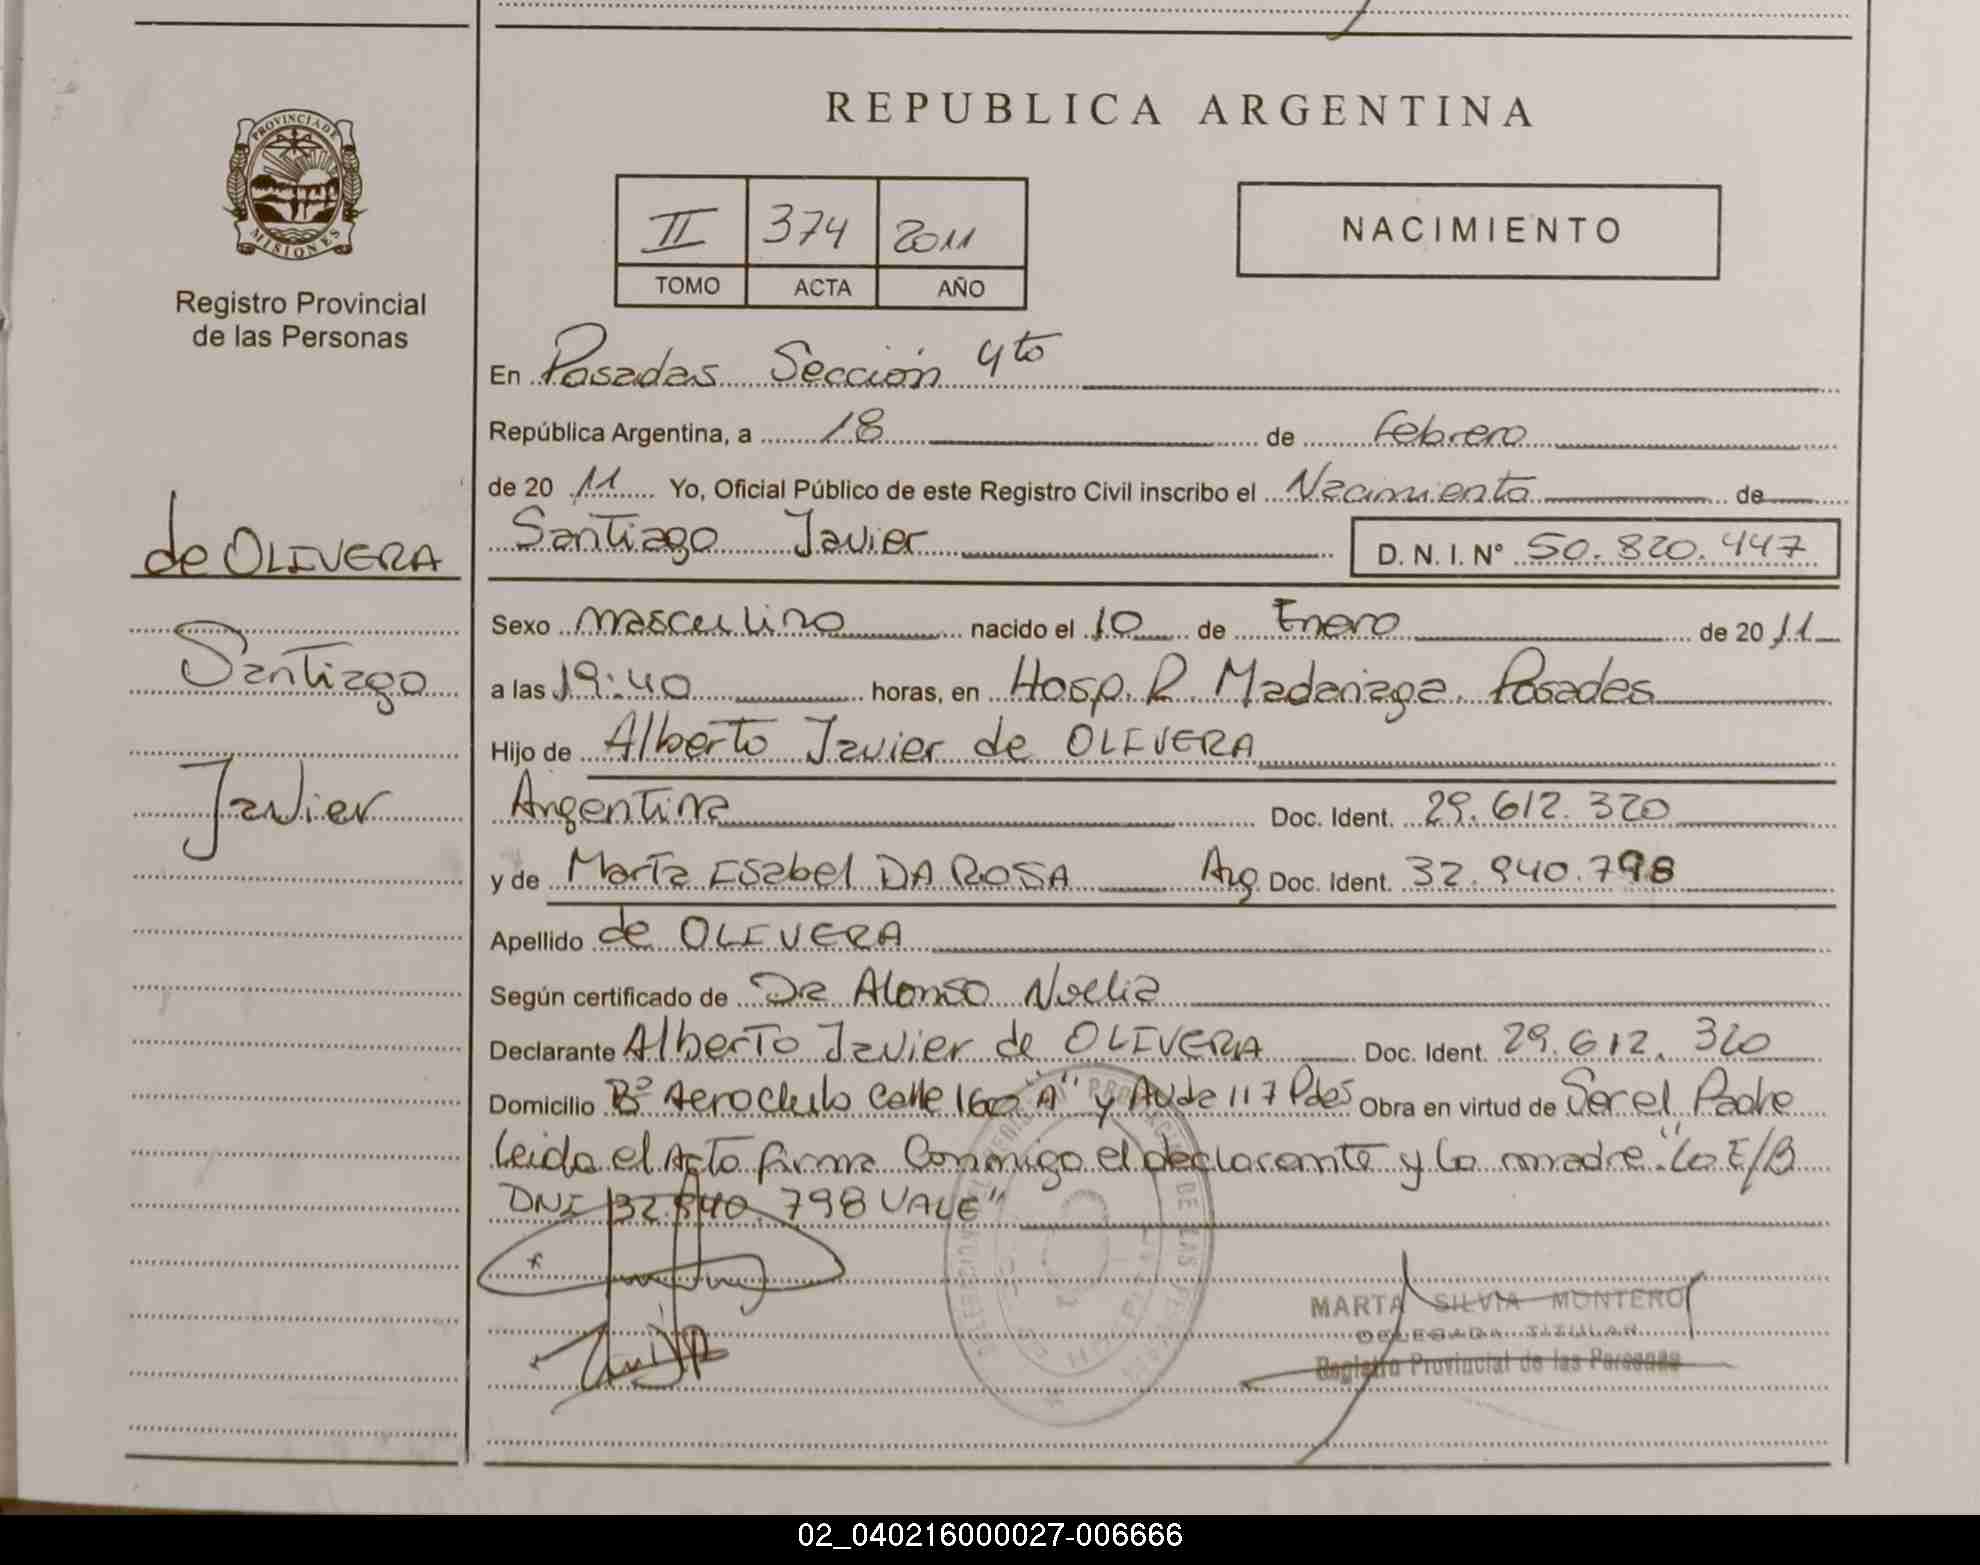 REPUBLICA ARGENTINA
PROVINCIA DE MISIONES
Registro Provincial
de las Personas
II 374 2011
TOMO ACTA AÑO
NACIMIENTO
de OLIVERA
Santiago
Javier
En Posadas Sección 4to
República Argentina, a 18 de Febrero
de 20 11 Yo, Oficial Público de este Registro Civil inscribo el Nacimiento de
Santiago Javier D. N. I. N° 50.820.447
Sexo masculino nacido el 10 de Enero de 20 11
a las 19:40 horas, en Hosp. R. Madariaga. Posadas
Hijo de Alberto Javier de OLIVERA
Argentina Doc. Ident. 29.612.320
y de Marta Isabel DA ROSA Arg Doc. Ident. 32.940.798
Apellido de OLIVERA
Según certificado de Dra Alonso Noelia
Declarante Alberto Javier de OLIVERA Doc. Ident. 29.612.320
Domicilio B° Aeroclub Calle 160 "A" y Avda 117 Pdas Obra en virtud de Ser el Padre
Leida el Acto firma Conmigo el declarante y la madre "Lo E/B
DNI 32.940.798 VALE"
MARTA SILVIA MONTERO
DELEGADA TITULAR
Registro Provincial de las Personas
02_040216000027-006666